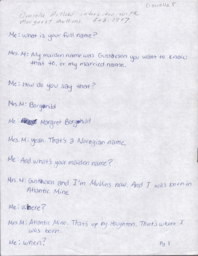 Me: what is your full name?
Mrs. M: My maiden name was Gustafson you want to know
that to, or my married name.
Me: How do you say that?
Mrs. M: Borgehild
Me: Margret Borgehild
Mrs. M: yeah. That's a Norwegian name.
Me: And what's your maiden name?
Mrs. M: Gustafson and I'm Mullins now. And I was born in
Atlantic Mine.
Me: where?
Mrs. M: Atlantic Mine. That's up by Houghton. That's where I
was born.
Me: when?
Pg 1